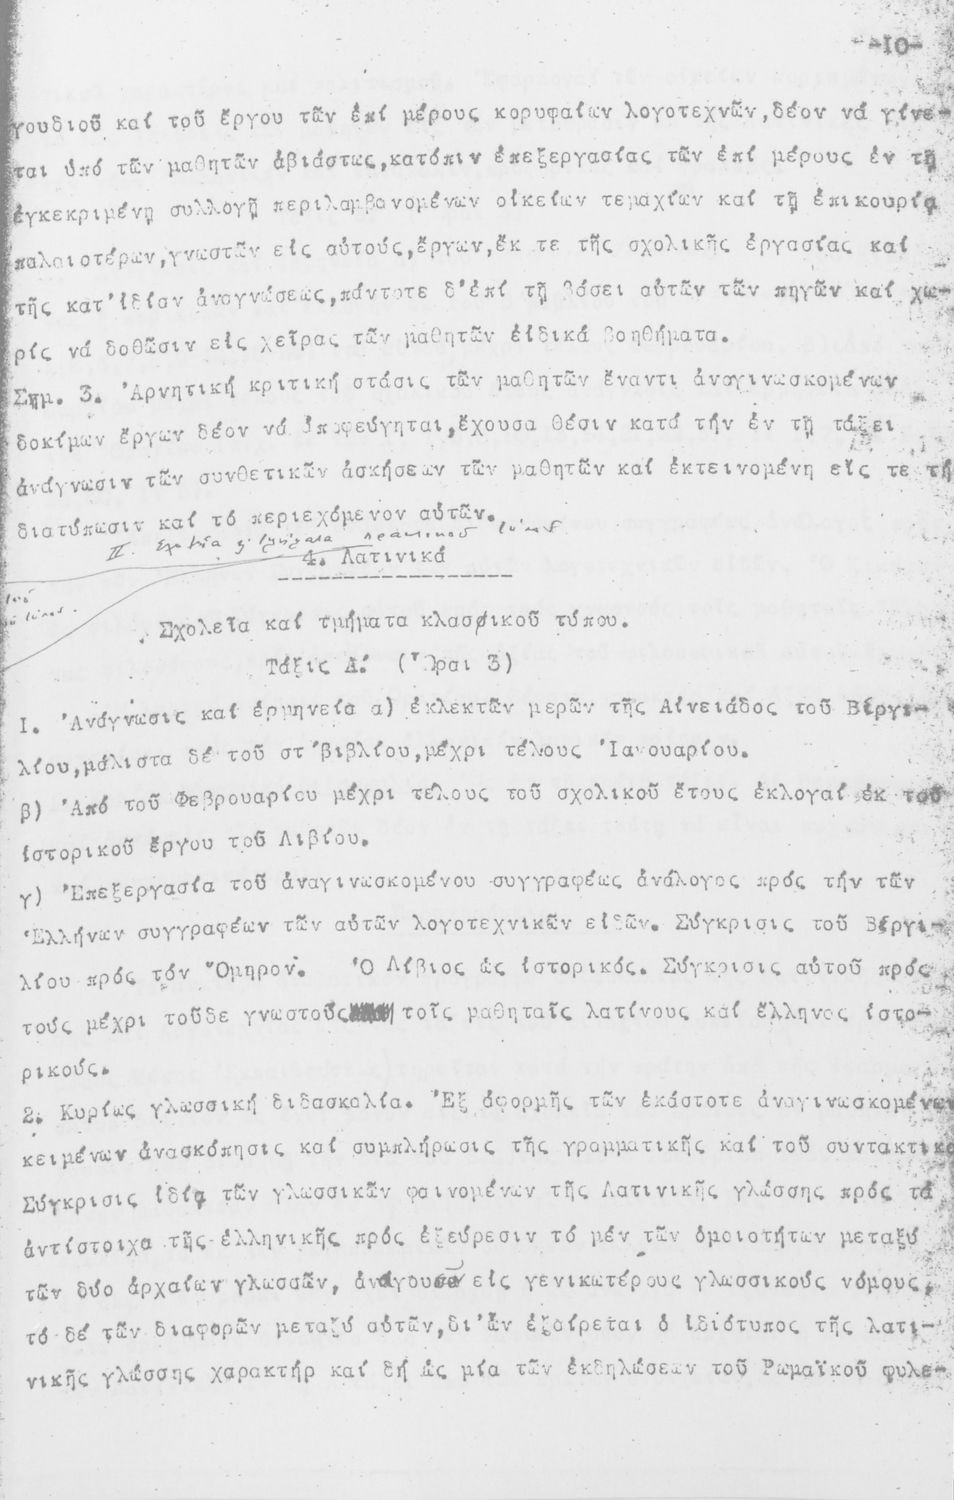 -10-
γουδιοῦ καί τοῦ ἔργου τῶν ἐπί μέρους κορυφαίων λογοτεχνῶν,δέον νά γίνε-
ται ὑπό τῶν μαθητῶν ἀβιάστως,κατόπιν ἐπεξεργασίας τῶν ἐπί μέρους ἐν τῇ
ἐγκεκριμένῃ συλλογῇ περιλαμβανομένων οἰκείων τεμαχίων καί τῇ ἐπικουρίᾳ
παλαιοτέρων,γνωστῶν εἰς αὐτούς,ἔργων,ἔκ τε τῆς σχολικῆς ἐργασίας καί
τῆς κατ'ἰδίαν ἀναγνώσεως,πάντοτε δ'ἐπί τῇ βάσει αὐτῶν τῶν πηγῶν καί χω-
ρίς νά δοθῶσιν εἰς χεῖρας τῶν μαθητῶν εἰδικά βοηθήματα.
Σημ. 3. Ἀρνητική κριτική στάσις τῶν μαθητῶν ἔναντι ἀναγινωσκομένων
δοκίμων ἔργων δέον νά ἀποφεύγηται,ἔχουσα θέσιν κατά τήν ἐν τῇ τάξει
ἀνάγνωσιν τῶν συνθετικῶν ἀσκήσεων τῶν μαθητῶν καί ἐκτεινομένη εἰς τε τή
διατύπωσιν καί τό περιεχόμενον αὐτῶν.
II. Σχολεῖα ἤ τμήματα πρακτικοῦ τύπου
4. Λατινικά
Σχολεῖα καί τμήματα κλασσικοῦ τύπου.
Τάξις Α΄ (Ὧραι 3)
I. Ἀνάγνωσις καί ἑρμηνεία α) ἐκλεκτῶν μερῶν τῆς Αἰνειάδος τοῦ Βιργι-
λίου,μάλιστα δέ τοῦ στ΄βιβλίου,μέχρι τέλους Ἰανουαρίου.
β) Ἀπό τοῦ Φεβρουαρίου μέχρι τέλους τοῦ σχολικοῦ ἔτους ἐκλογαί ἐκ τοῦ
ἱστορικοῦ ἔργου τοῦ Λιβίου.
γ) Ἐπεξεργασία τοῦ ἀναγινωσκομένου συγγραφέως ἀνάλογος πρός τήν τῶν
Ἑλλήνων συγγραφέων τῶν αὐτῶν λογοτεχνικῶν εἰδῶν. Σύγκρισις τοῦ Βιργι-
λίου πρός τόν Ὅμηρον. Ὁ Λίβιος ὡς ἱστορικός. Σύγκρισις αὐτοῦ πρός
τούς μέχρι τοῦδε γνωστούς τοῖς μαθηταῖς λατίνους καί ἕλληνας ἱστο-
ρικούς.
2. Κυρίως γλωσσική διδασκαλία. Ἐξ ἀφορμῆς τῶν ἑκάστοτε ἀναγινωσκομένων
κειμένων ἀνασκόπησις καί συμπλήρωσις τῆς γραμματικῆς καί τοῦ συντακτικο
Σύγκρισις ἰδίᾳ τῶν γλωσσικῶν φαινομένων τῆς Λατινικῆς γλώσσης πρός τά
ἀντίστοιχα τῆς ἑλληνικῆς πρός ἐξεύρεσιν τό μέν τῶν ὁμοιοτήτων μεταξύ
τῶν δύο ἀρχαίων γλωσσῶν, εἰς γενικωτέρους γλωσσικούς νόμους,
τό δέ τῶν διαφορῶν μεταξύ αὐτῶν,δι'ὧν ἐξαίρεται ὁ ἰδιότυπος τῆς λατι-
νικῆς γλώσσης χαρακτήρ καί δή ὡς μία τῶν ἐκδηλώσεων τοῦ Ρωμαϊκοῦ φυλε-